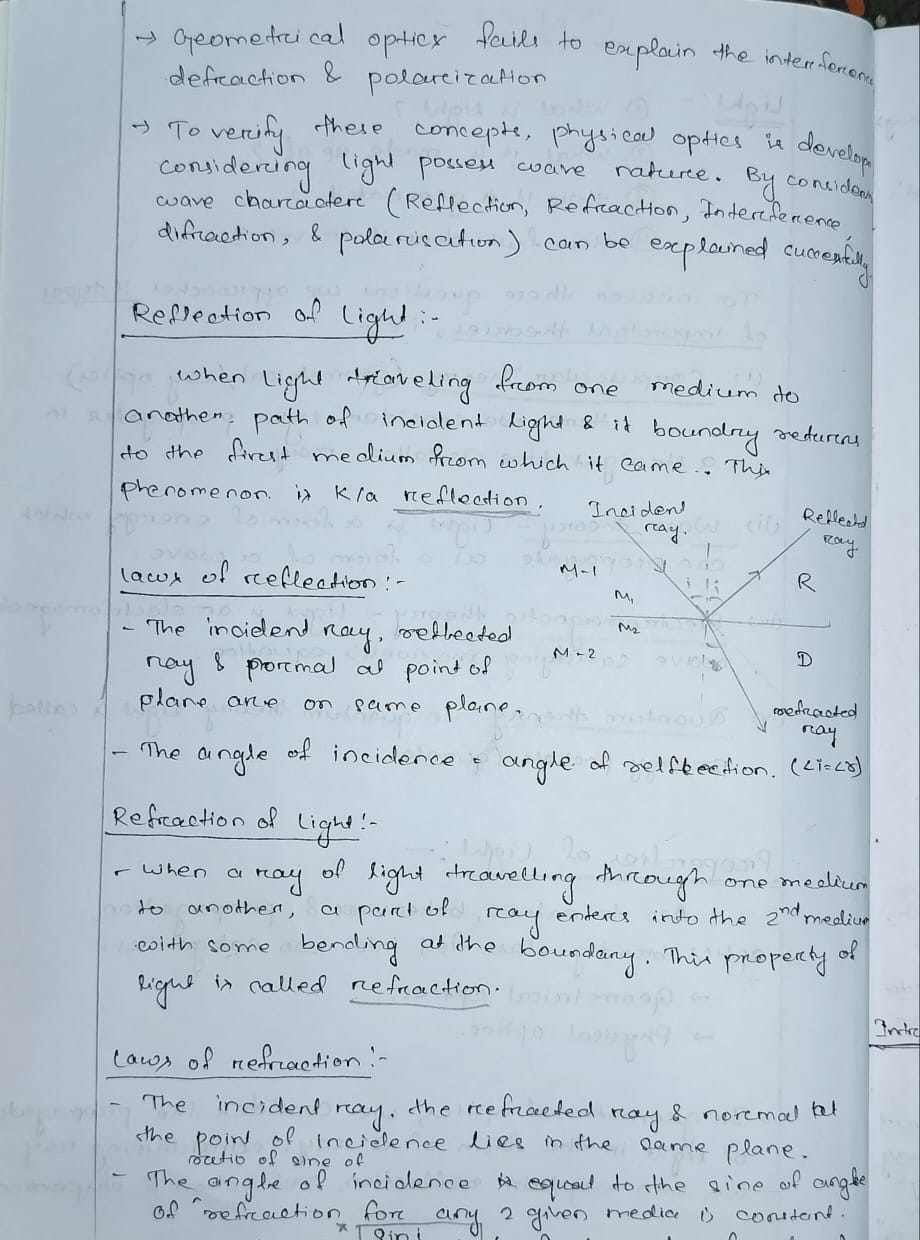 → Geometrical optics fails to explain the interference
defraction & polarization
→ To verify these concepts, physical optics is develop
considering light possess wave nature. By consider
wave character (Reflection, Refraction, Interference,
difraction, & polarisation) can be explained sucessfully.
Reflection of light :-
when light traveling from one medium to
another. path of incident light & it boundry returns
to the first medium from which it came. This
phenomenon is k/a reflection.
Incident
ray.
Reflected
ray
M-1
M₁
R
i
M₂
M-2
D
refracted
ray
laws of reflection :-
- The incident ray, reflected
ray & normal at point of
plane are on same plane.
- The angle of incidence = angle of relftection. (∠i=∠r)
Refraction of light :-
- When a ray of light travelling through one medium
to another, a part of ray enters into the 2nd medium
with some bending at the boundary. This property of
light is called refraction.
Intro
Laws of refraction :-
- The incident ray, the refracted ray & normal at
the point of incidence lies in the same plane.
ratio of sine of
- The angle of incidence equal to the sine of angle
of refraction for any 2 given media is constant.
* Sin i